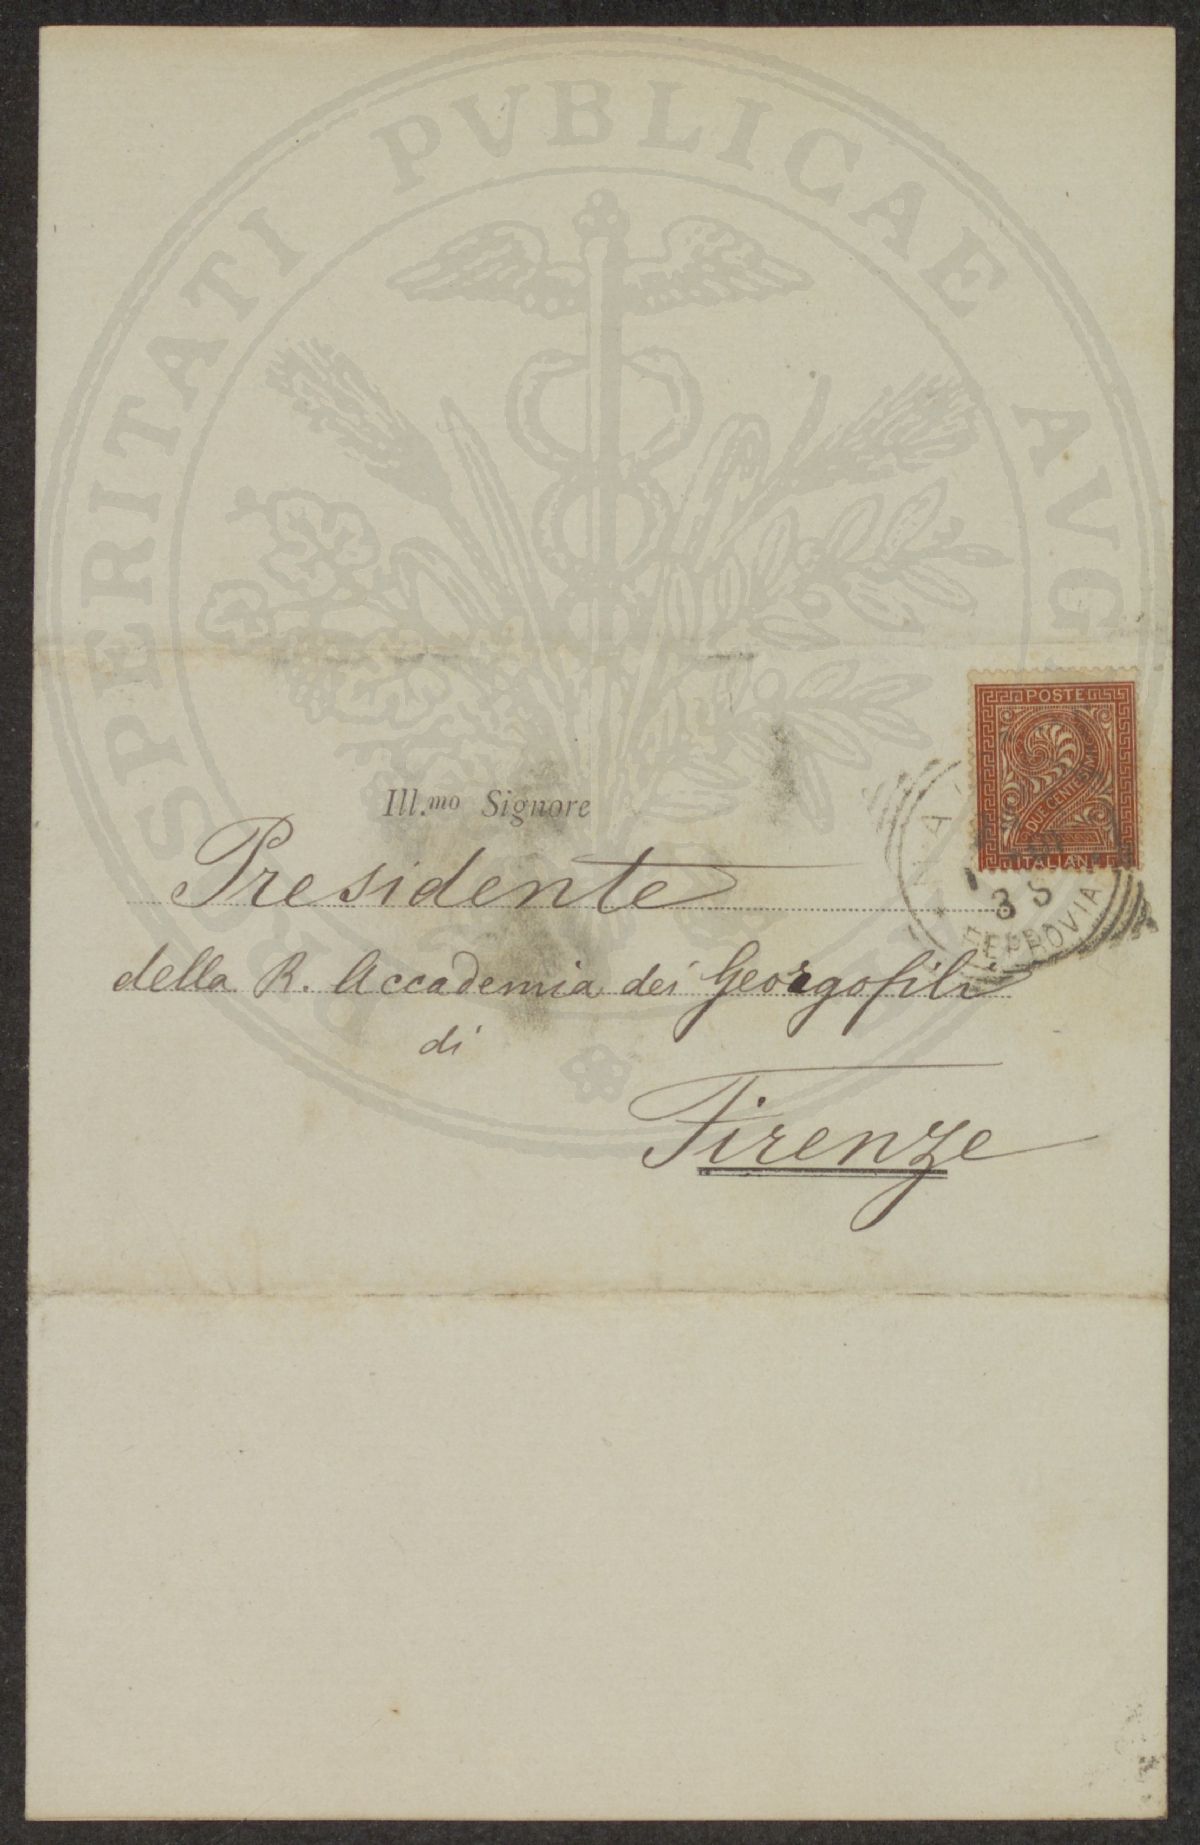 PROSPERITATI PVBLICAE AVGENDAE
POSTE
DUE CENTESIMI
ITALIANE
3 S
FERROVIA
Ill.mo Signore
Presidente
della R. Accademia dei Georgofili
di
Firenze